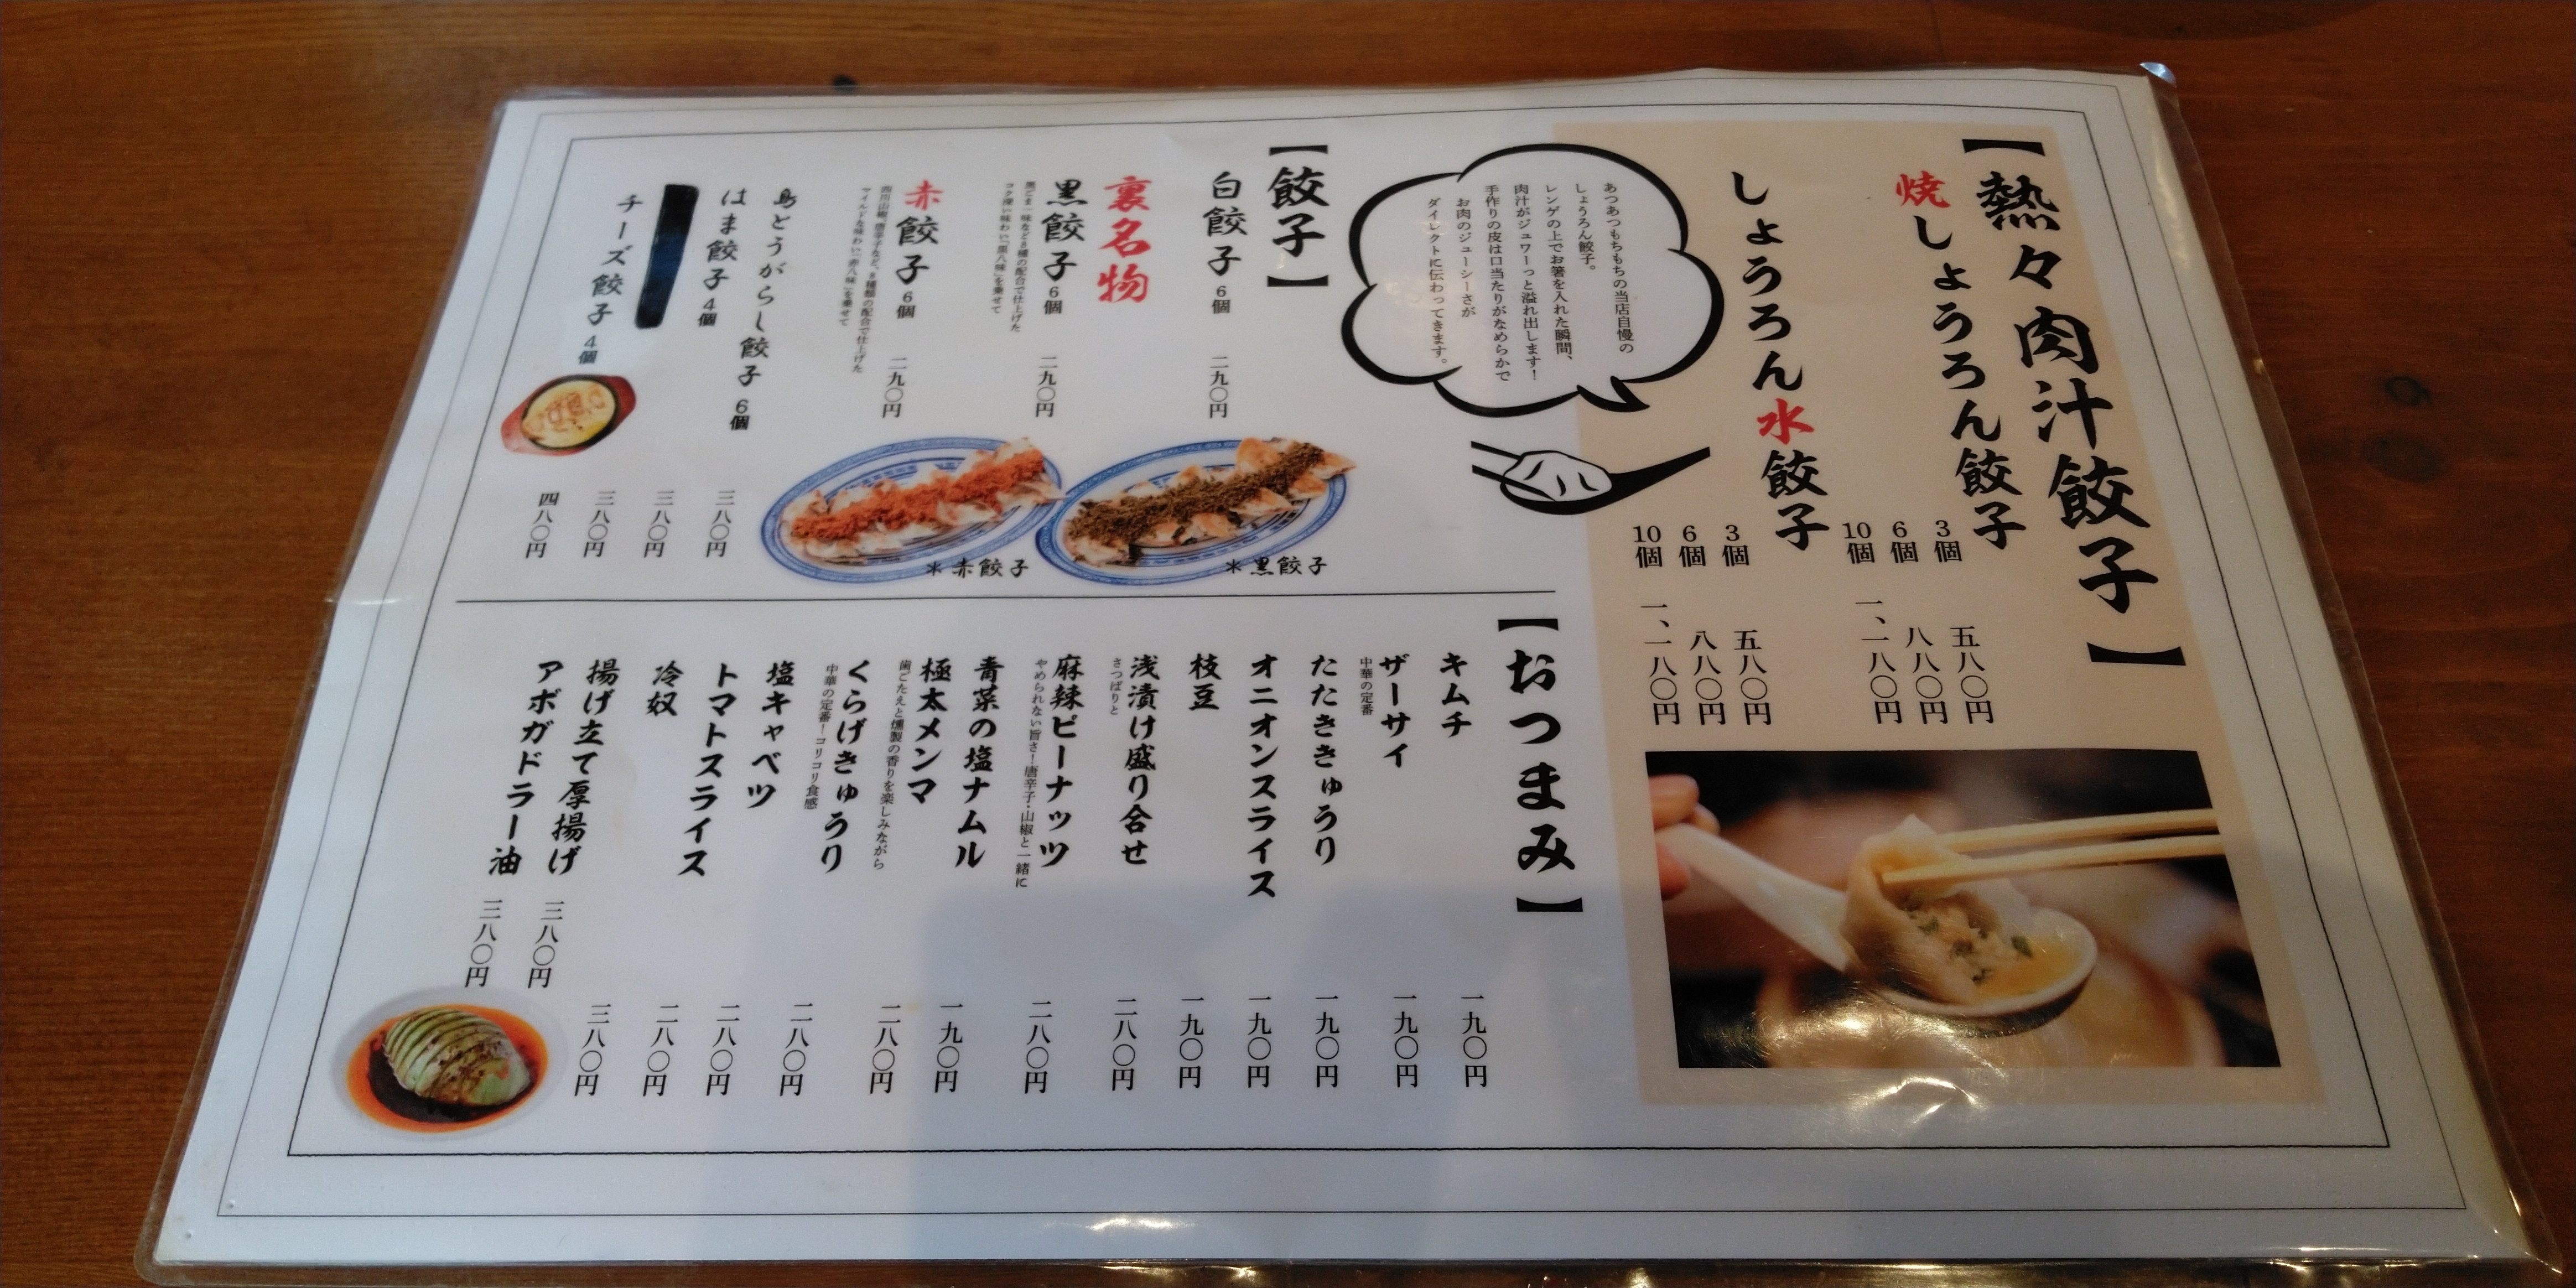 【熱々肉汁餃子】
焼しょうろん餃子
3個 五八〇円
6個 八八〇円
10個 一、一八〇円
しょうろん水餃子
3個 五八〇円
6個 八八〇円
10個 一、一八〇円
あつあつもちもちの当店自慢の
しょうろん餃子。
レンゲの上でお箸を入れた瞬間、
肉汁がジュワーっと溢れ出します！
手作りの皮は口当たりがなめらかで
お肉のジューシーさが
ダイレクトに伝わってきます。
【餃子】
白餃子 6個 二九〇円
裏名物
黒餃子 6個 二九〇円
黒ごま一味など8種の配合で仕上げた
コク深い味わい「黒八味」を乗せて
赤餃子 6個 二九〇円
四川山椒、唐辛子など、8種類の配合で仕上げた
マイルドな味わい「赤八味」を乗せて
＊黒餃子
＊赤餃子
島とうがらし餃子 6個 三八〇円
はま餃子 4個 三八〇円
三八〇円
チーズ餃子 4個 四八〇円
【おつまみ】
キムチ 一九〇円
ザーサイ 一九〇円
中華の定番
たたききゅうり 一九〇円
オニオンスライス 一九〇円
枝豆 一九〇円
浅漬け盛り合せ 二八〇円
さっぱりと
麻辣ピーナッツ 二八〇円
やめられない旨さ！唐辛子・山椒と一緒に
青菜の塩ナムル 一九〇円
極太メンマ 二八〇円
歯ごたえと燻製の香りを楽しみながら
くらげきゅうり 二八〇円
中華の定番！コリコリ食感
塩キャベツ 二八〇円
トマトスライス 二八〇円
冷奴 三八〇円
揚げ立て厚揚げ 三八〇円
アボガドラー油 三八〇円